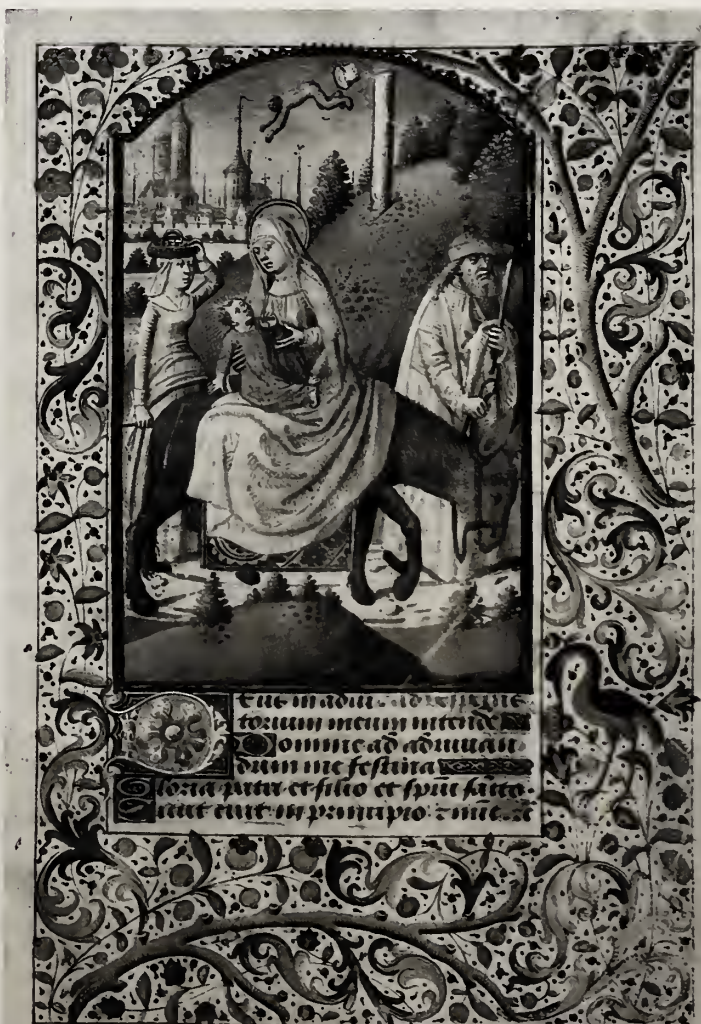 Deus in adiu
torium meum intende
Domine ad adiuuan
dum me festina
Gloria patri et filio et spiritui sancto
sicut erat in principio